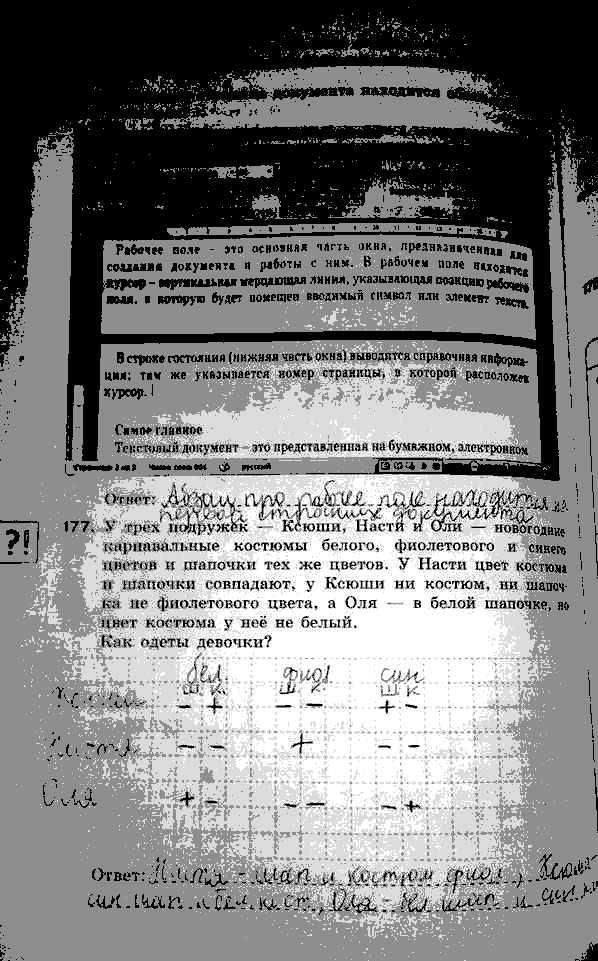 документа находится
Рабочее поле – это основная часть окна, предназначенная для
создания документа и работы с ним. В рабочем поле находится
курсор – вертикальная мерцающая линия, указывающая позицию рабочего
поля, в которую будет помещен вводимый символ или элемент текста.
В строке состояния (нижняя часть окна) выводится справочная информа-
ция; там же указывается номер страницы, в которой расположен
курсор.
Самое главное
Текстовый документ – это представленная на бумажном, электронном
Страница: 3 из 3 Число слов: русский
Ответ: Абзац про рабочее поле находится на
первой странице документа
177. У трех подружек — Ксюши, Насти и Оли — новогодние
?!
карнавальные костюмы белого, фиолетового и синего
цветов и шапочки тех же цветов. У Насти цвет костюма
и шапочки совпадают, у Ксюши ни костюм, ни шапоч-
ка не фиолетового цвета, а Оля — в белой шапочке, но
цвет костюма у неё не белый.
Как одеты девочки?
бел. фиол. син
Ш К Ш К Ш К
Ксюша – + – – + –
Настя – – + – –
Оля + – – – – +
Ответ: Настя - шап и костюм фиол, Ксюша-
син шап и бел кост, Оля - бел шап и син